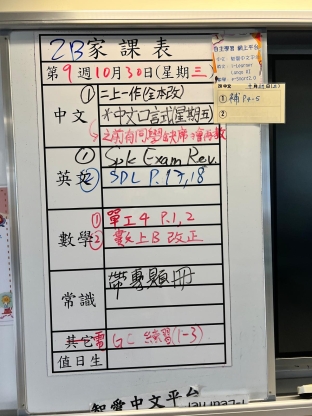 2B家課表
第9週10月30日(星期三)
中文
①二上一作(全本改)
*中文口試(星期五)
英文
①Spk Exam Rev.
②SDL P.17,18
數學
①單工4 P.1,2
②數上B 改正
常識
帶專題冊
其它
GC 練習(1-3)
值日生
自主學習 網上平台
①補P4-5
②
智愛中文平台